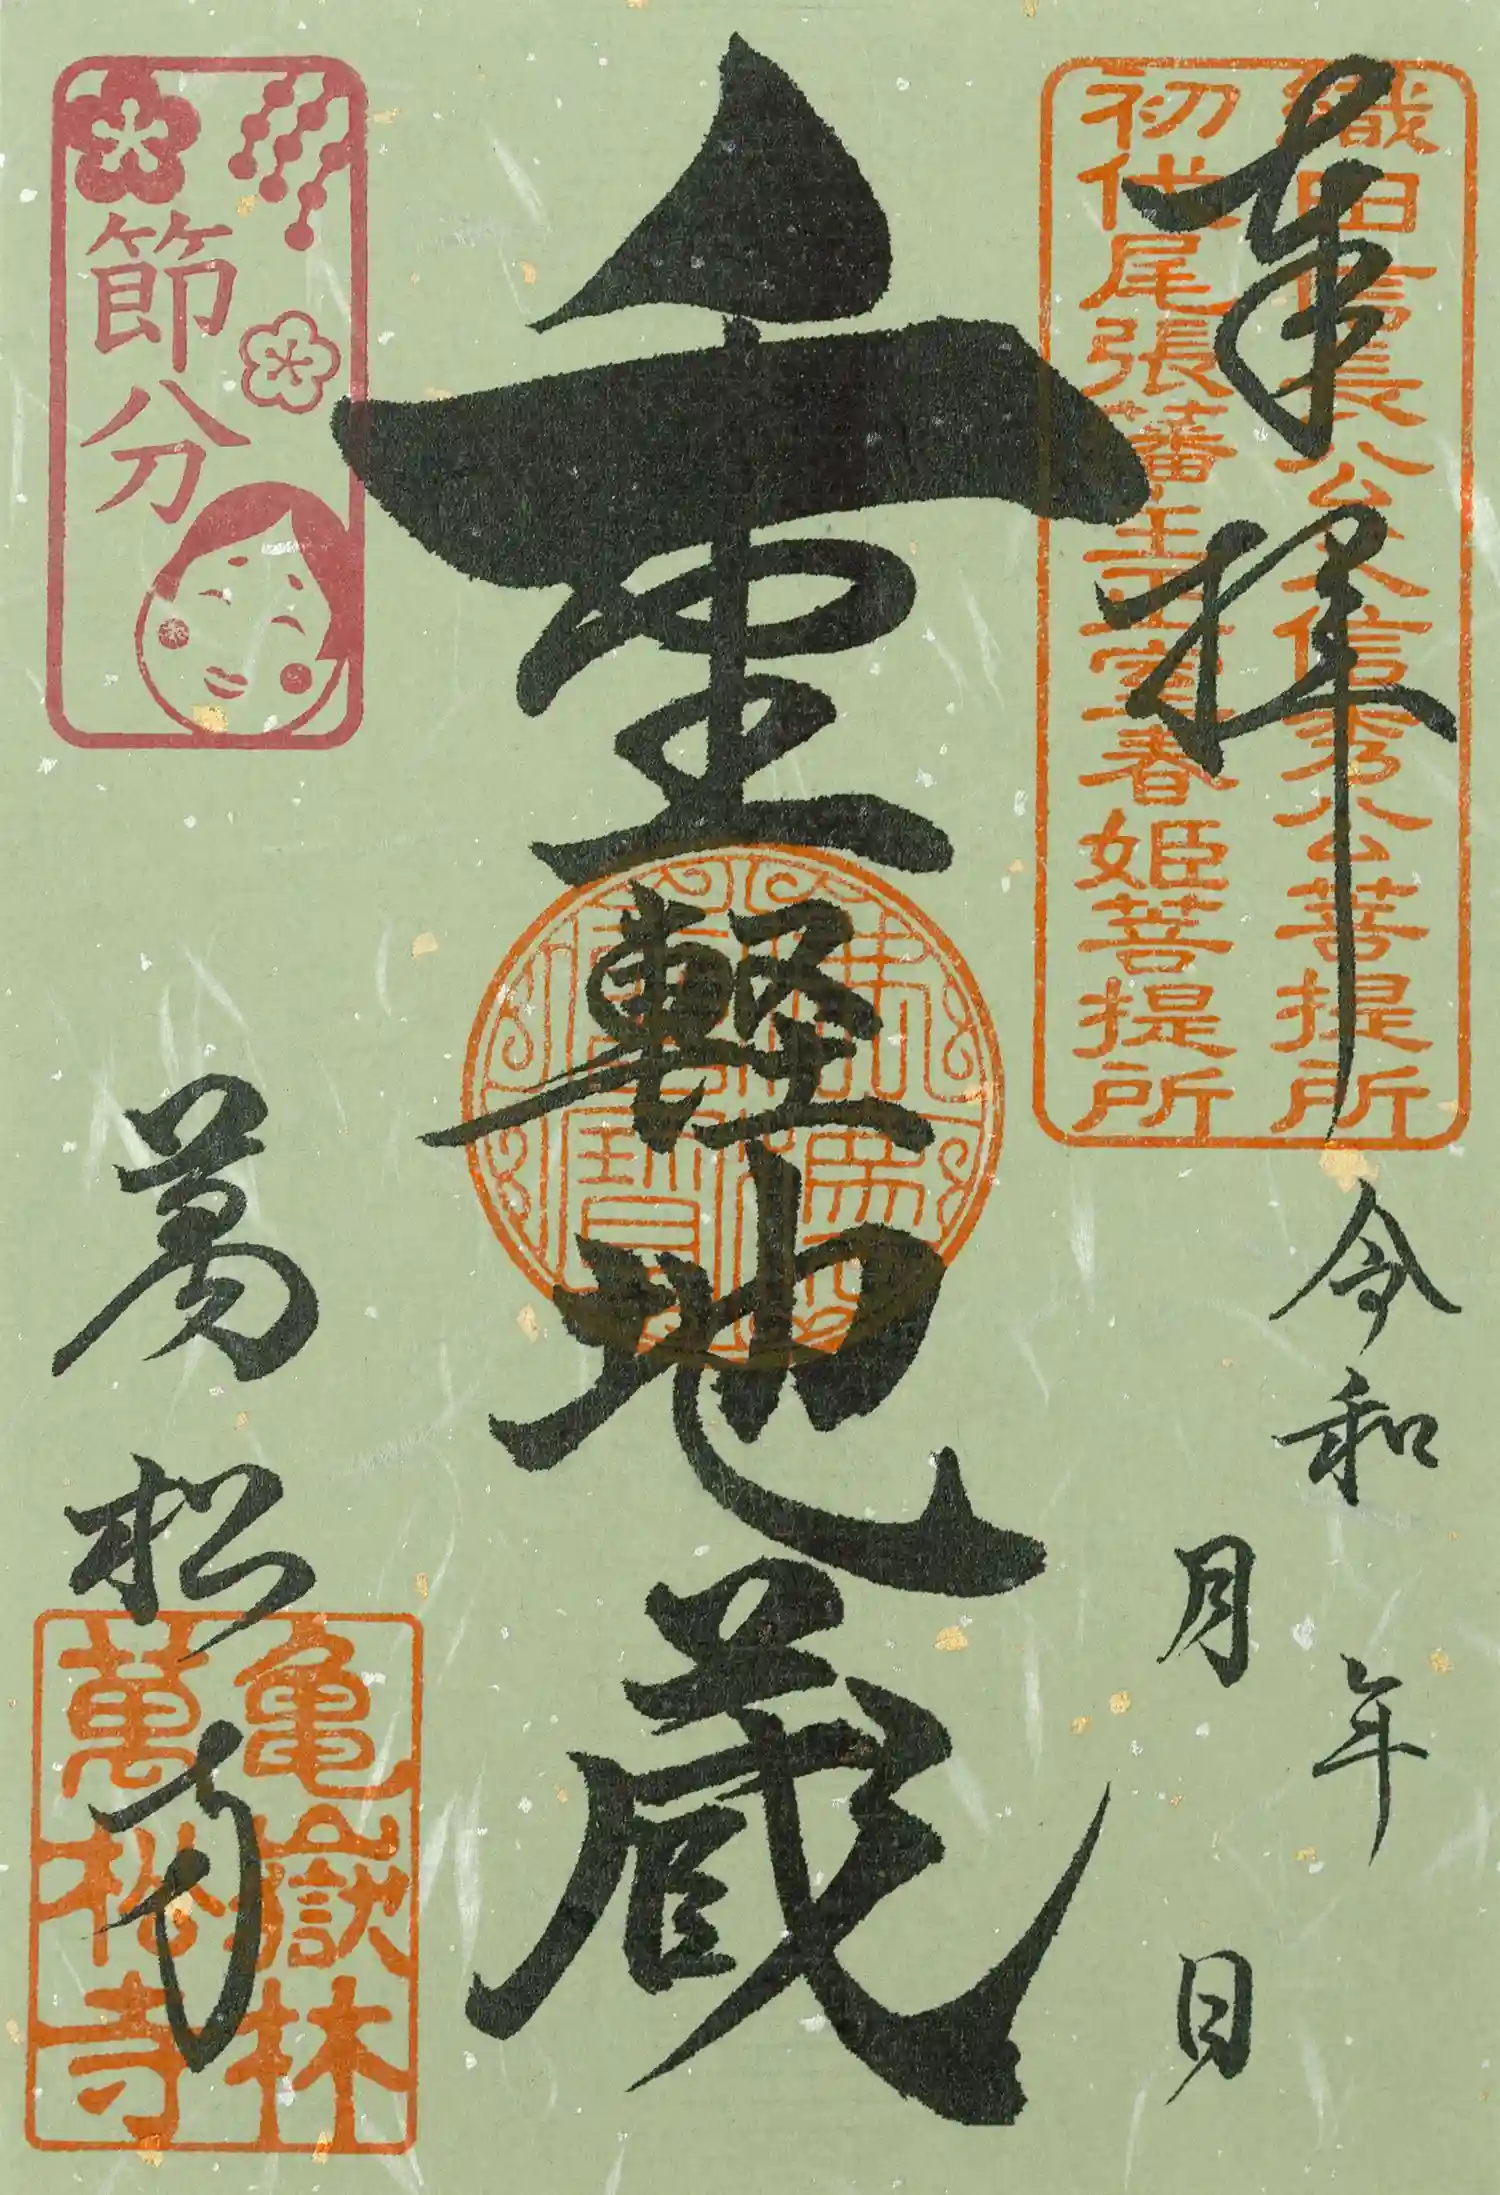 奉拝
織田信長公父信秀公菩提所
初代尾張藩主正室春姫菩提所
令和
年
月
日
重軽地蔵
節分
萬松寺
亀嶽林
萬松寺